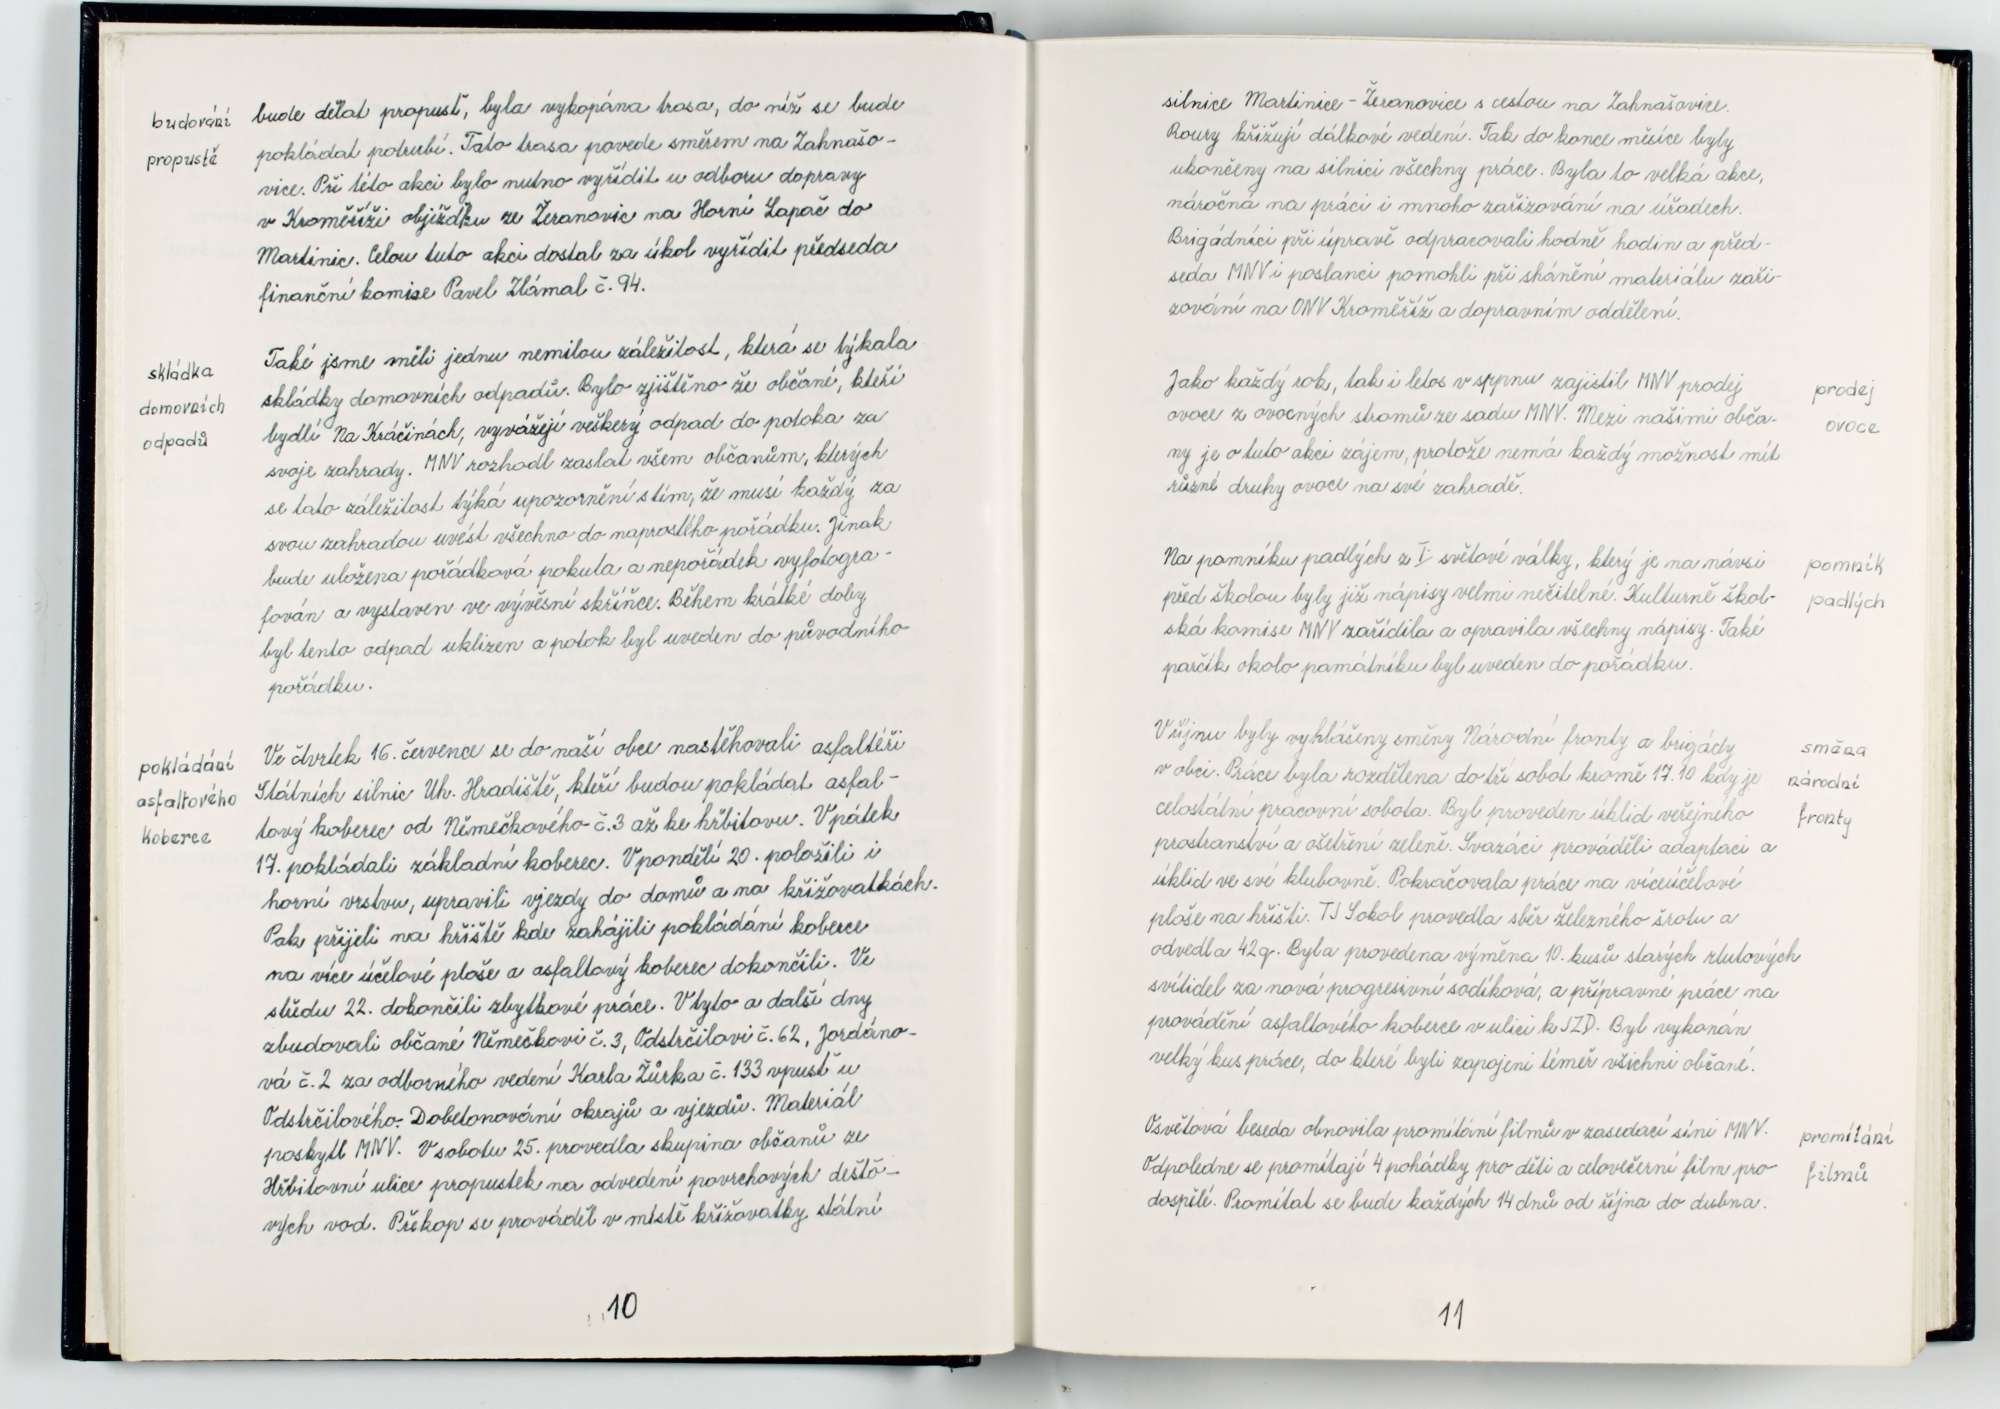 budování
propustě
bude dělat propusť, byla vykopána trasa, do níž se bude
pokládat potrubí. Tato trasa povede směrem na Zahnašo-
vice. Při této akci bylo nutno vyřídit u odboru dopravy
v Kroměříži objížďku ze Žeranovic na Horní Lapač do
Martinic. Celou tuto akci dostal za úkol vyřídit předseda
finanční komise Pavel Zlámal č. 94.
skládka
domovních
odpadů
Také jsme měli jednu nemilou záležitost, která se týkala
skládky domovních odpadů. Bylo zjištěno že občané, kteří
bydlí Na Kráčinách, vyvážejí veškerý odpad do potoka za
svoje zahrady. MNV rozhodl zaslat všem občanům, kterých
se tato záležitost týká upozornění s tím, že musí každý za
svou zahradou uvést všechno do naprostého pořádku. Jinak
bude uložena pořádková pokuta a nepořádek vyfotogra-
fován a vystaven ve vývěsní skříňce. Během krátké doby
byl tento odpad uklizen a potok byl uveden do původního
pořádku.
pokládání
asfaltového
koberce
Ve čtvrtek 16. července se do naší obce nastěhovali asfaltéři
Státních silnic Uh. Hradiště, kteří budou pokládat asfal-
tový koberec od Němečkového č. 3 až ke hřbitovu. V pátek
17. pokládali základní koberec. V pondělí 20. položili i
horní vrstvu, upravili vjezdy do domů a na křižovatkách.
Pak přijeli na hřiště kde zahájili pokládání koberce
na více účelové ploše a asfaltový koberec dokončili. Ve
středu 22. dokončili zbytkové práce. V tyto a další dny
zbudovali občané Němečkovi č. 3, Odstrčilovi č. 62, Jordáno-
vá č. 2 za odborného vedení Karla Žůrka č. 133 vpusť u
Odstrčilového. Dobetonování okrajů a vjezdů. Materiál
poskytl MNV. V sobotu 25. provedla skupina občanů ze
Hřbitovní ulice propustek na odvedení povrchových dešťo-
vých vod. Překop se prováděl v místě křižovatky státní
10
silnice Martinice - Žeranovice s cestou na Zahnašovice.
Roury křižují dálkové vedení. Tak do konce měsíce byly
ukončeny na silnici všechny práce. Byla to velká akce,
náročná na práci i mnoho zařizování na úřadech.
Brigádníci při úpravě odpracovali hodně hodin a před-
seda MNV i poslanci pomohli při shánění materiálu zaři-
zování na ONV Kroměříž a dopravním oddělení.
Jako každý rok, tak i letos v sppnu zajistil MNV prodej
ovoce z ovocných stromů ze sadu MNV. Mezi našimi obča-
ny je o tuto akci zájem, protože nemá každý možnost mít
různé druhy ovoce na své zahradě.
prodej
ovoce
Na pomníku padlých z I. světové války, který je na návsi
před školou byly již nápisy velmi nečitelné. Kulturně škol-
ská komise MNV zařídila a opravila všechny nápisy. Také
parčík okolo památníku byl uveden do pořádku.
pomník
padlých
V říjnu byly vyhlášeny směny Národní fronty a brigády
v obci. Práce byla rozdělena do tří sobot kromě 17.10 kdy je
celostátní pracovní sobota. Byl proveden úklid veřejného
prostranství a ošetření zeleně. Svazáci prováděli adaptaci a
úklid ve své klubovně. Pokračovala práce na víceúčelové
ploše na hřišti. TJ Sokol provedla sběr železného šrotu a
odvedla 42q. Byla provedena výměna 10. kusů starých rtutových
svítidel za nová progresivní sodíková, a přípravné práce na
provádění asfaltového koberce v ulici k JZD. Byl vykonán
velký kus práce, do které byli zapojeni téměř všichni občané.
směna
národní
fronty
Osvětová beseda obnovila promítání filmů v zasedací síni MNV.
Odpoledne se promítají 4 pohádky pro děti a celovečerní film pro
dospělé. Promítat se bude každých 14 dnů od října do dubna.
promítání
filmů
11